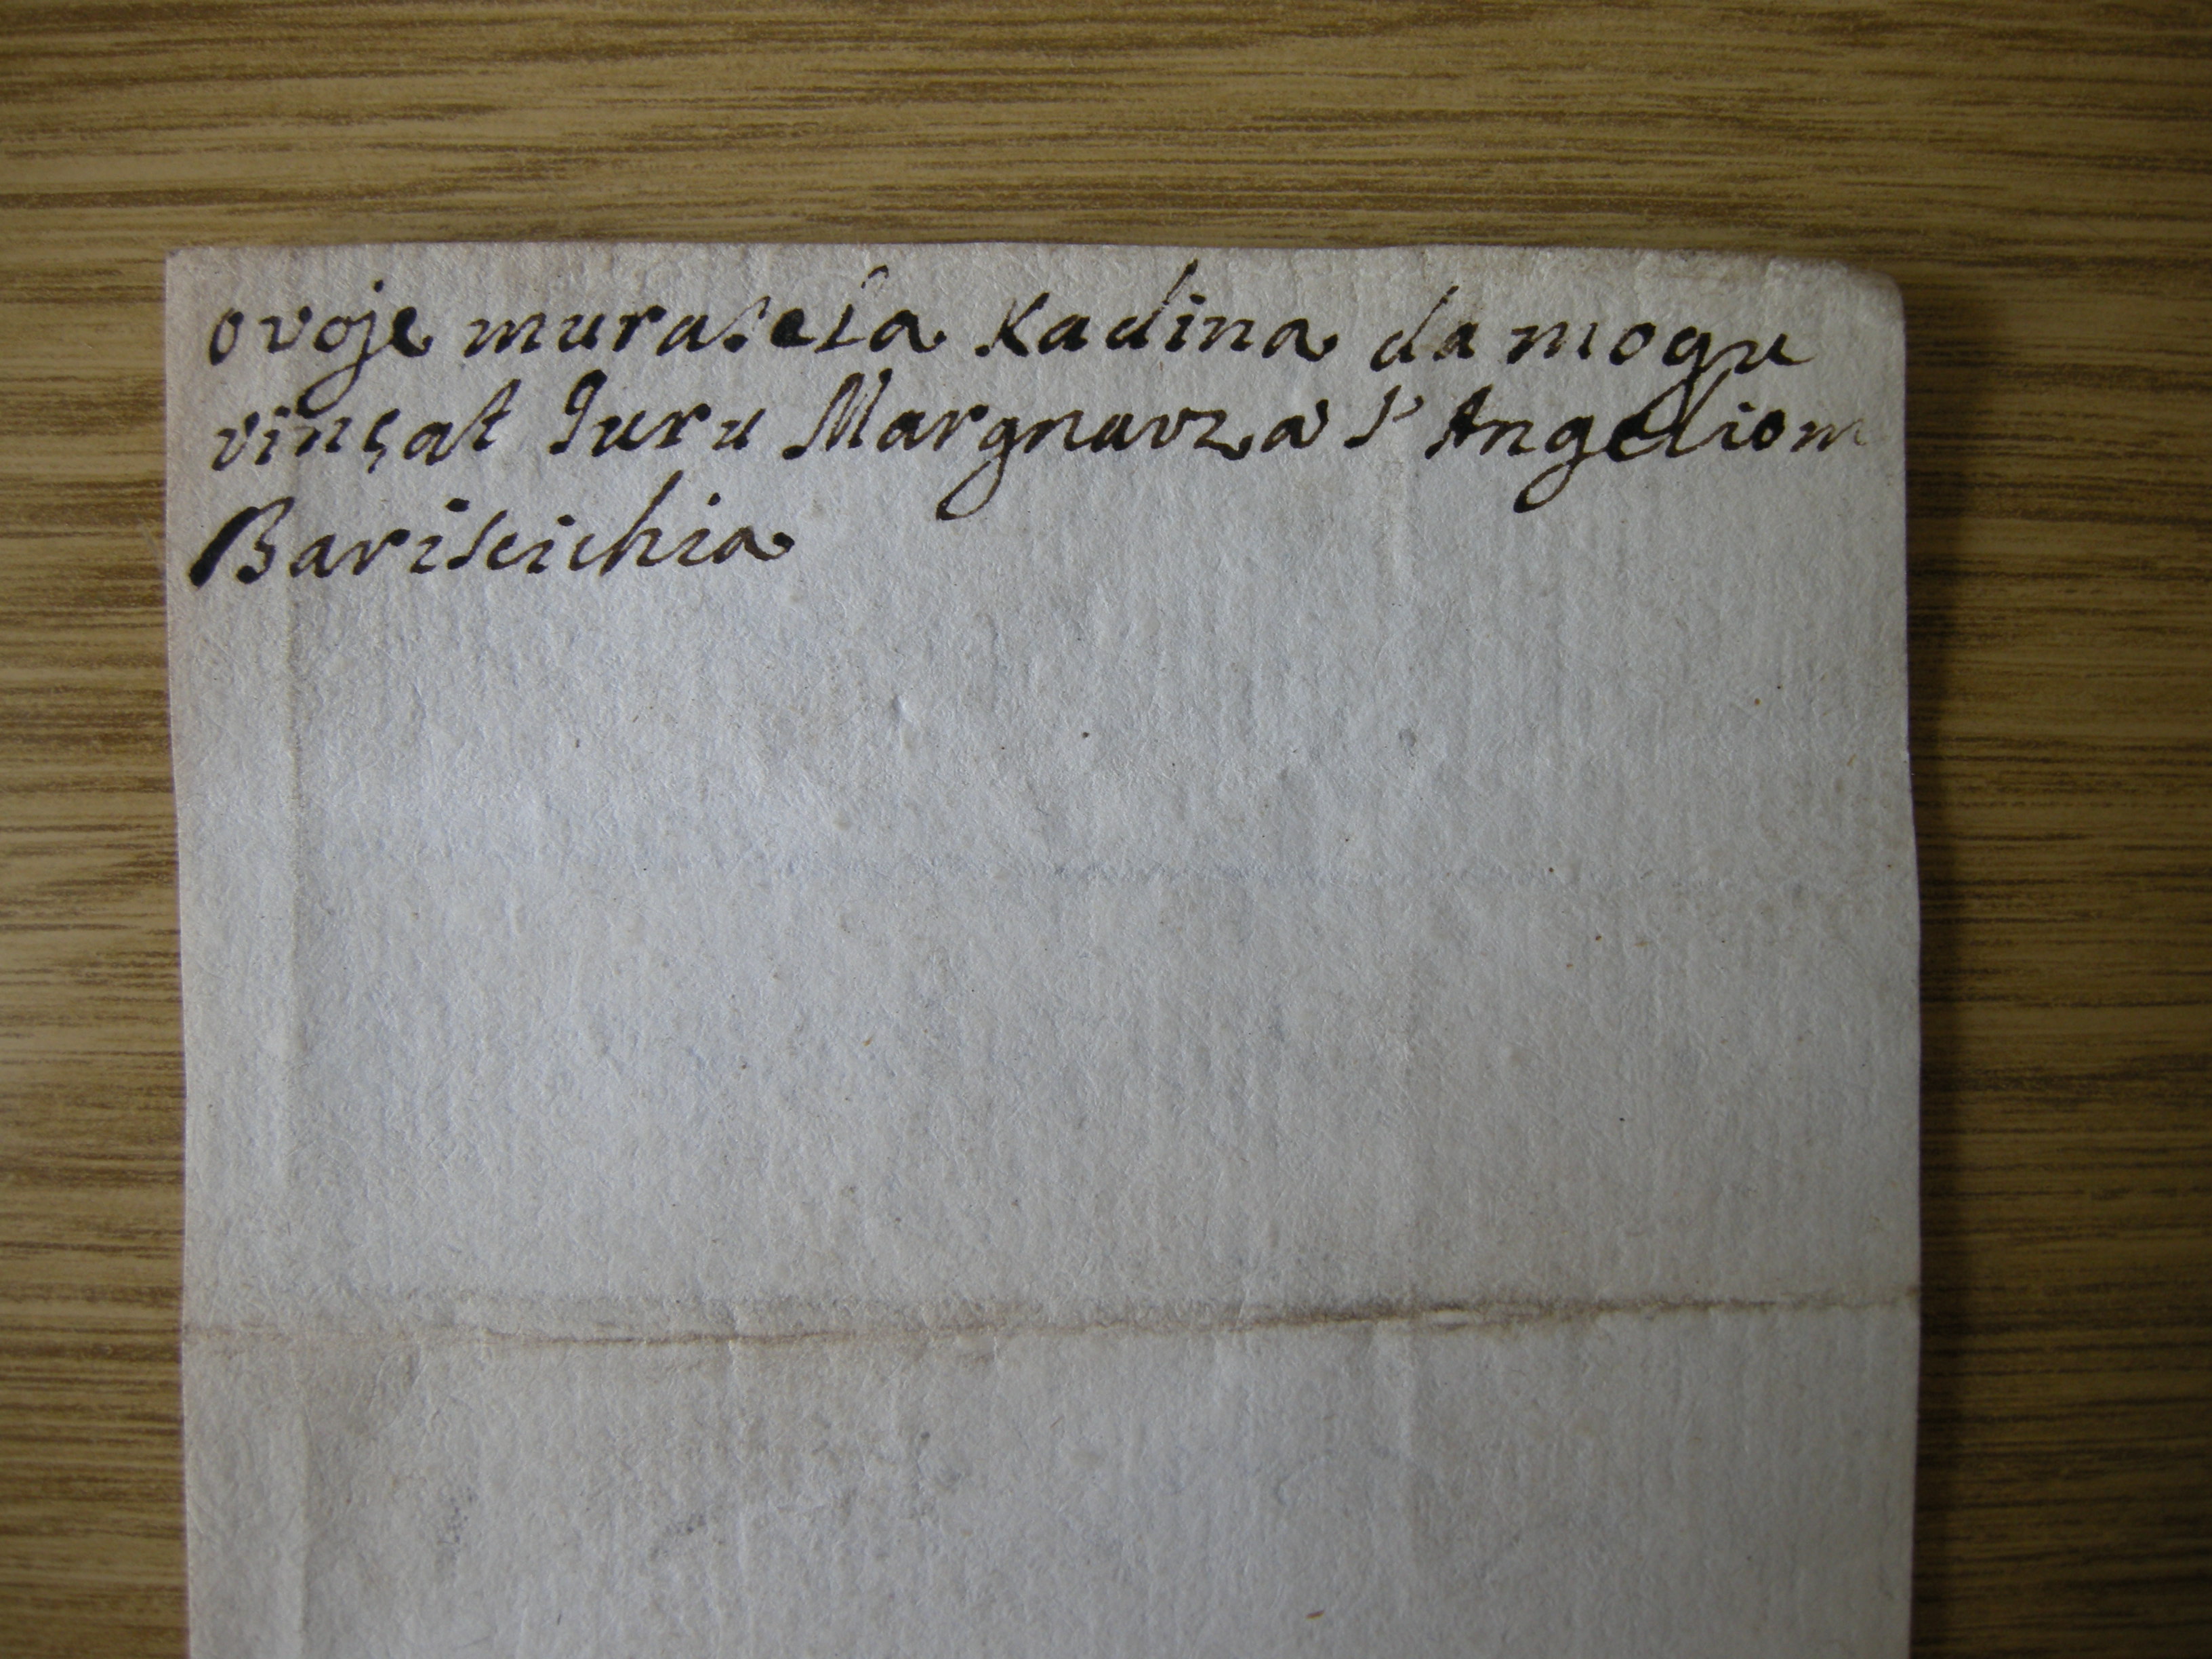 ovoje murasela Kadina da mogu
vinçat Juru Margnavza s' Angeliom
Bariscichia